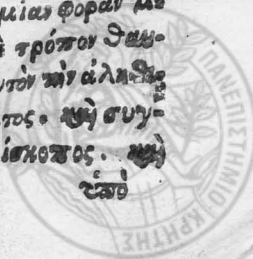 μίαν φορὰν με
τρόπον θαυ-
τὸν τὴν ἀληθει-
τος. καὶ συγ-
ίσκοπος. καὶ
ὑπὸ
ΠΑΝΕΠΙΣΤΗΜΙΟ ΚΡΗΤΗΣ